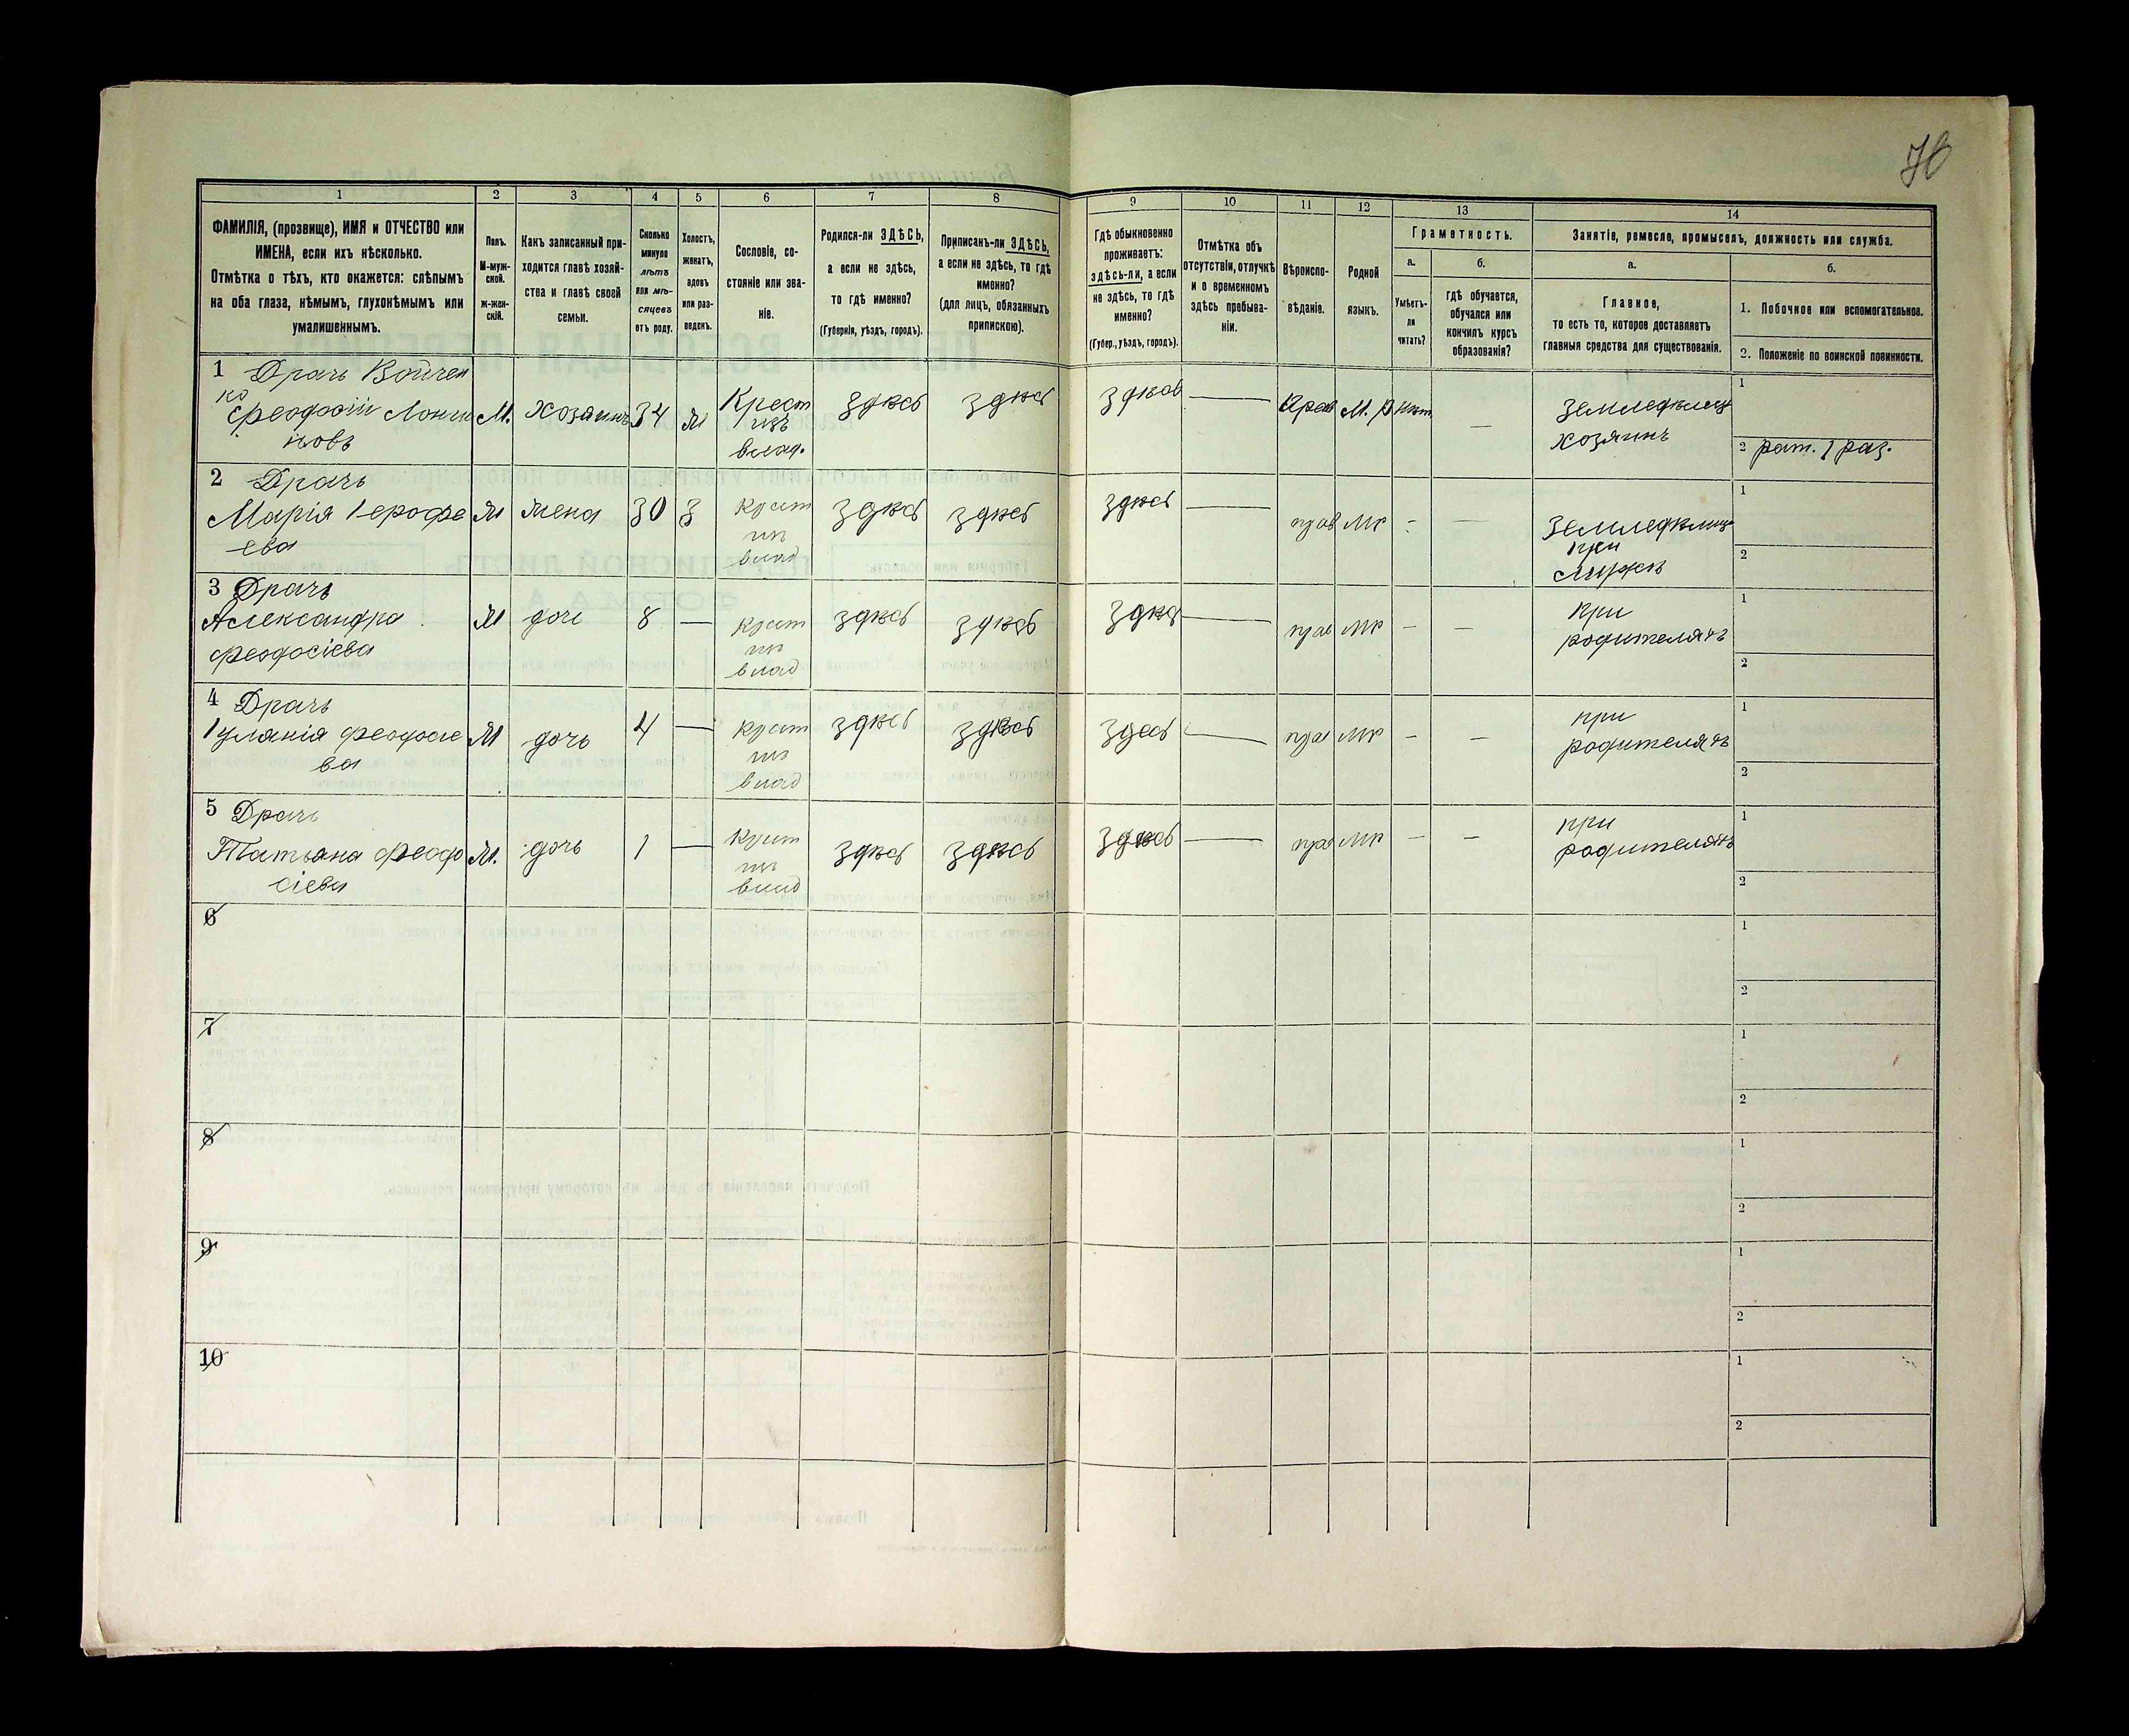 76
1
2
3
4
5
6
7
8
ФАМИЛІЯ, (прозвище), ИМЯ и ОТЧЕСТВО или
ИМЕНА, если ихъ нѣсколько.
Отмѣтка о тѣхъ, кто окажется: слѣпымъ
на оба глаза, нѣмымъ, глухонѣмымъ или
умалишеннымъ.
Полъ.
М-муж-
ской.
ж-жен-
скій.
Какъ записанный при-
ходится главѣ хозяй-
ства и главѣ своей
семьи.
Сколько
минуло
лѣтъ
или мѣ-
сяцевъ
отъ роду.
Холостъ,
женатъ,
вдовъ
или раз-
веденъ.
Сословіе, со-
стояніе или зва-
ніе.
Родился-ли ЗДѢСЬ,
а если не здѣсь,
то гдѣ именно?
(Губернія, уѣздъ, городъ).
Приписанъ-ли ЗДѢСЬ,
а если не здѣсь, то гдѣ
именно?
(для лицъ, обязанныхъ
припискою).
9
10
11
12
13
14
Гдѣ обыкновенно
проживаетъ:
здѣсь-ли, а если
не здѣсь, то гдѣ
именно?
(Губер., уѣздъ, городъ).
Отмѣтка объ
отсутствіи, отлучкѣ
и о временномъ
здѣсь пребыва-
ніи.
Вѣроиспо-
вѣданіе.
Родной
языкъ.
Грамотность.
а.
Умѣетъ-
ли
читать?
б.
гдѣ обучается,
обучался или
кончилъ курсъ
образованія?
Занятіе, ремесло, промыселъ, должность или служба.
а.
Главное,
то есть то, которое доставляетъ
главныя средства для существованія.
б.
1. Побочное или вспомогательное.
2. Положеніе по воинской повинности.
1 Драчь Войчен
ко
Феодосій Логги
новъ
М. хозяинъ 34 ж Крест
изъ
влад. здѣсь здѣсь здѣсь — Прав М. р нѣт — земледѣлец
хозяинъ
1
2 рат. 1 раз.
2 Драчь
Марія Іерофе
ева
ж жена 30 з крест
из
влад здѣсь здѣсь здѣсь — прав мр - — земледѣлец
при
мужѣ
1
2
3 Драчь
Александра
Феодосіева
ж дочь 8 — крест
из
влад здѣсь здѣсь здѣсь — прав мр — — при
родителяхъ
1
2
4 Драчь
Іулянія Феодосіе
ва
ж дочь 4 — крест
из
влад здѣсь здѣсь здесь — прав мр - — при
родителяхъ
1
2
5 Драчь
Татьяна Феодо
сіева
ж. дочь 1 — крест
из
влад здѣсь здѣсь здѣсь — прав мр — — при
родителяхъ
1
2
6
1
2
7
1
2
8
1
2
9
1
2
10
1
2